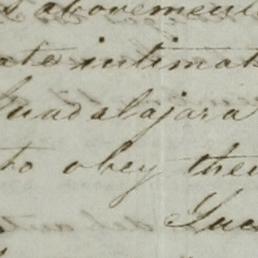 s abovement
ate intimat
Guadalajara
to obey thei